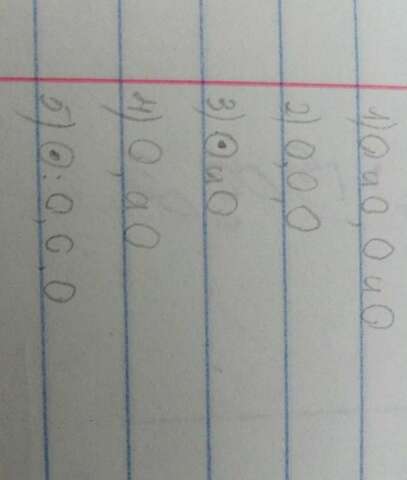 1) O и O, O и O
2) O, O, O
3) ⊙ и O
4) O, а O
5) ⊙: O, O, O